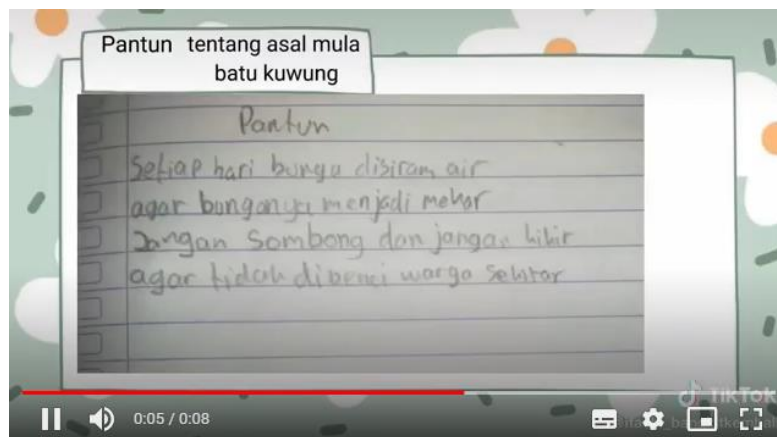 Pantun tentang asal mula
batu kuwung
Pantun
Setiap hari bunga disiram air
agar bunganya menjadi mekar
Jangan Sombong dan jangan kikir
agar tidak dibenci warga sekitar
0:05 / 0:08
TikTok